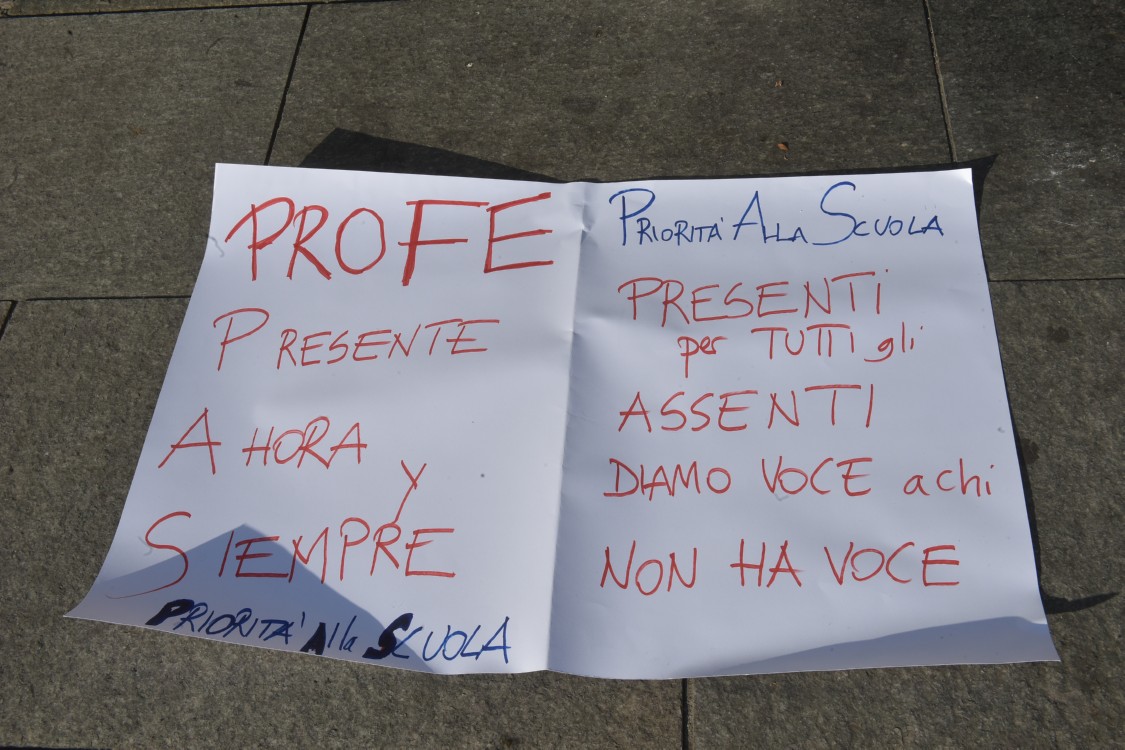 PROFE
PRESENTE
AHORA
y
SIEMPRE
PRIORITA' AllA SCUOLA
PRIORITA' ALLA SCUOLA
PRESENTI
per TUTTI gli
ASSENTI
DIAMO VOCE a chi
NON HA VOCE